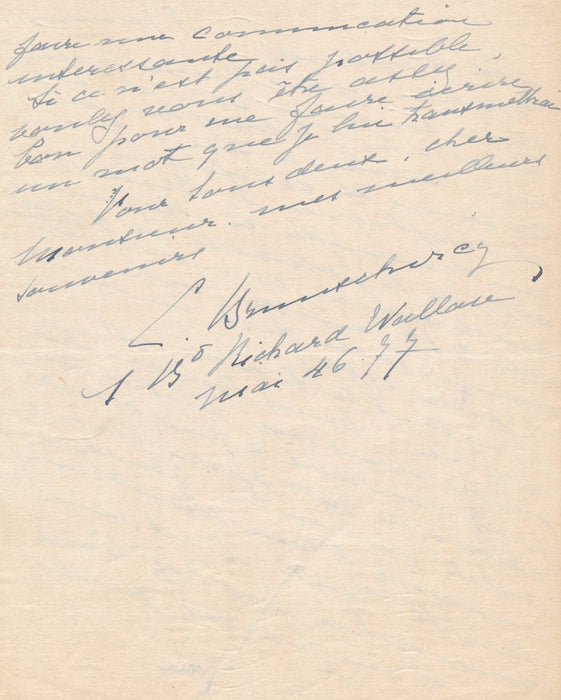 faire une communication
intéressante
Si ce n'est pas possible,
voulez vous être assez
bon pour me faire écrire
un mot que je lui transmettrai
Pour tous deux, cher
Monsieur, mes meilleurs
souvenirs
C.
1 Bd Richard Wallace
Mai 46.77